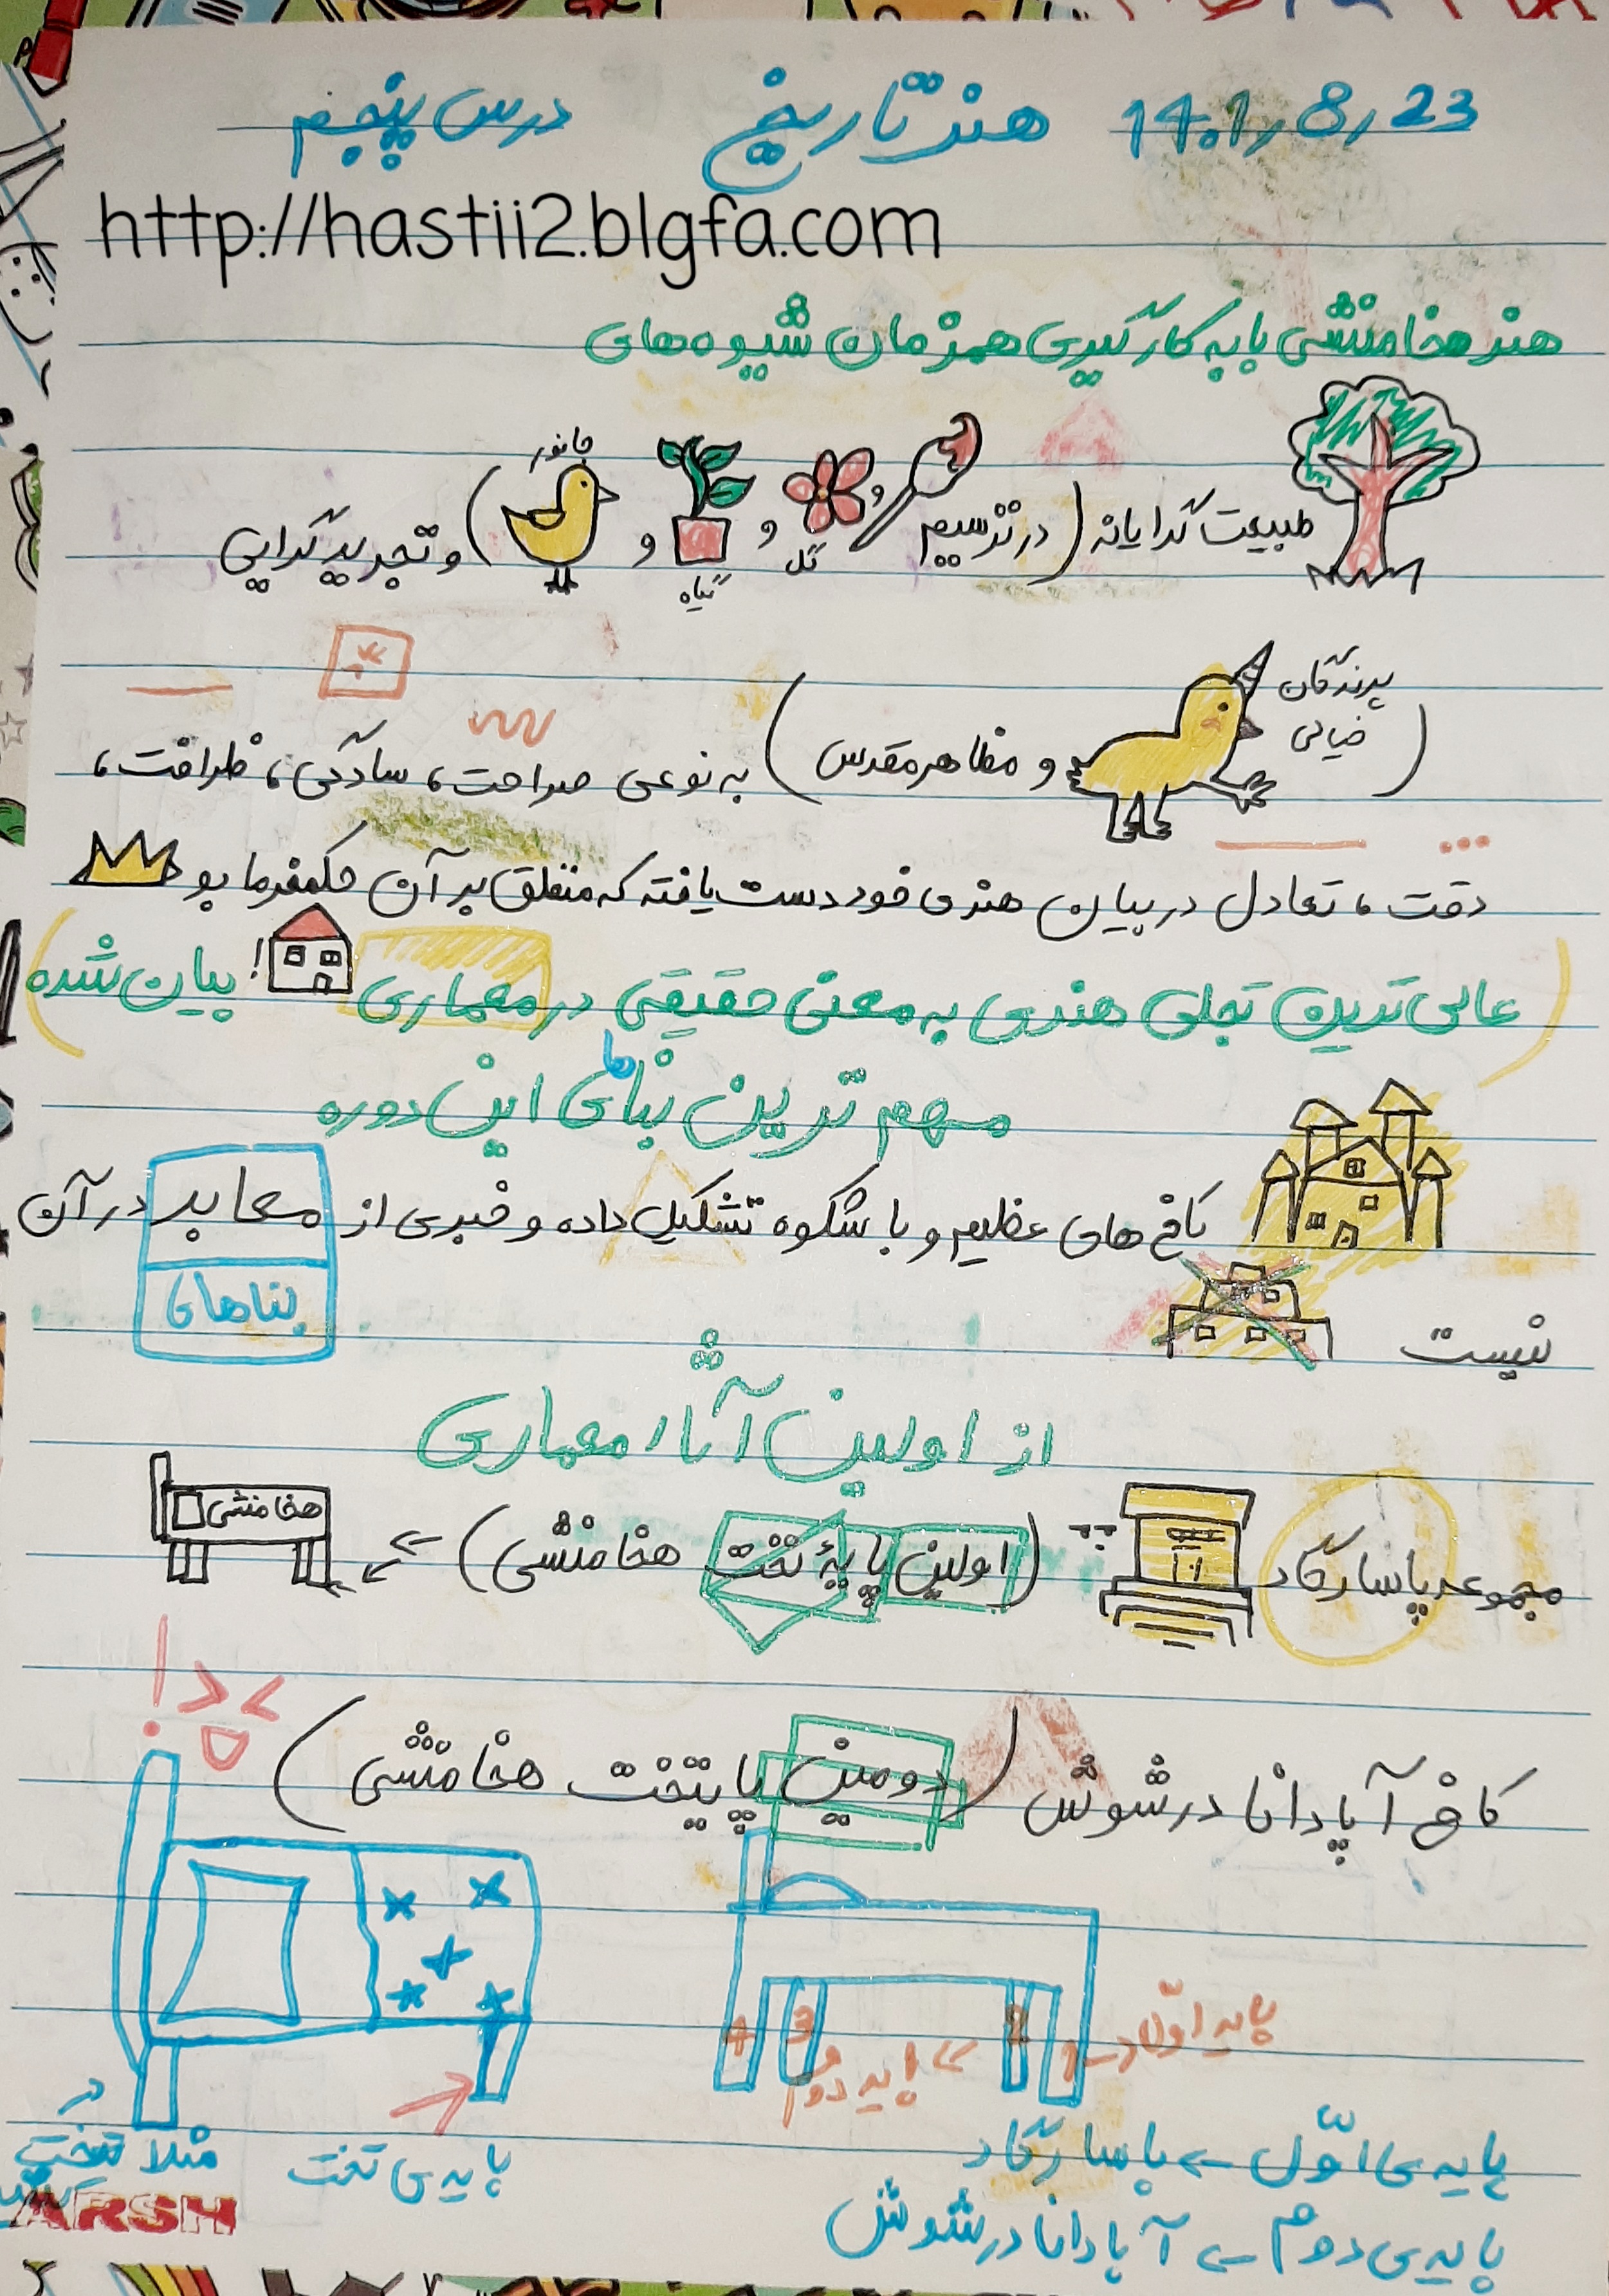 هنر تاریخ 1401/8/23 درس پنجم
http://hastii2.blgfa.com
هنر هخامنشی با به کارگیری همزمان شیوه‌های
طبیعت گرایانه (در ترسیم و گل و گیاه و جانور) و تجرید گرایی
(پرندگان خیالی و مظاهر مقدس) به نوعی صراحت، سادگی، ظرافت،
دقت، تعادل در بیان هنری خود دست یافته که متعلق بر آن حکمفرما بود
(عالی ترین تجلی هنری به معنی حقیقی در معماری! بیان شده)
مهم ترین بناهای این دوره
کاخ های عظیم و با شکوه تشکیل داده و خبری از معابد در آن
بناهای
نیست
از اولین آثار معماری
مجموعه پاسارگاد: (اولین پایهٔ تخت هخامنشی)
هخامنشی
کاخ آپادانا در شوش (دومین پایتخت هخامنشی)
پایه اول 1 2 3 4
پایه دوم
مثلا تخت
پایه ی تخت
پایه ی اوّل ← پاسارگاد
پایه ی دوم ← آپادانا در شوش
ARSH